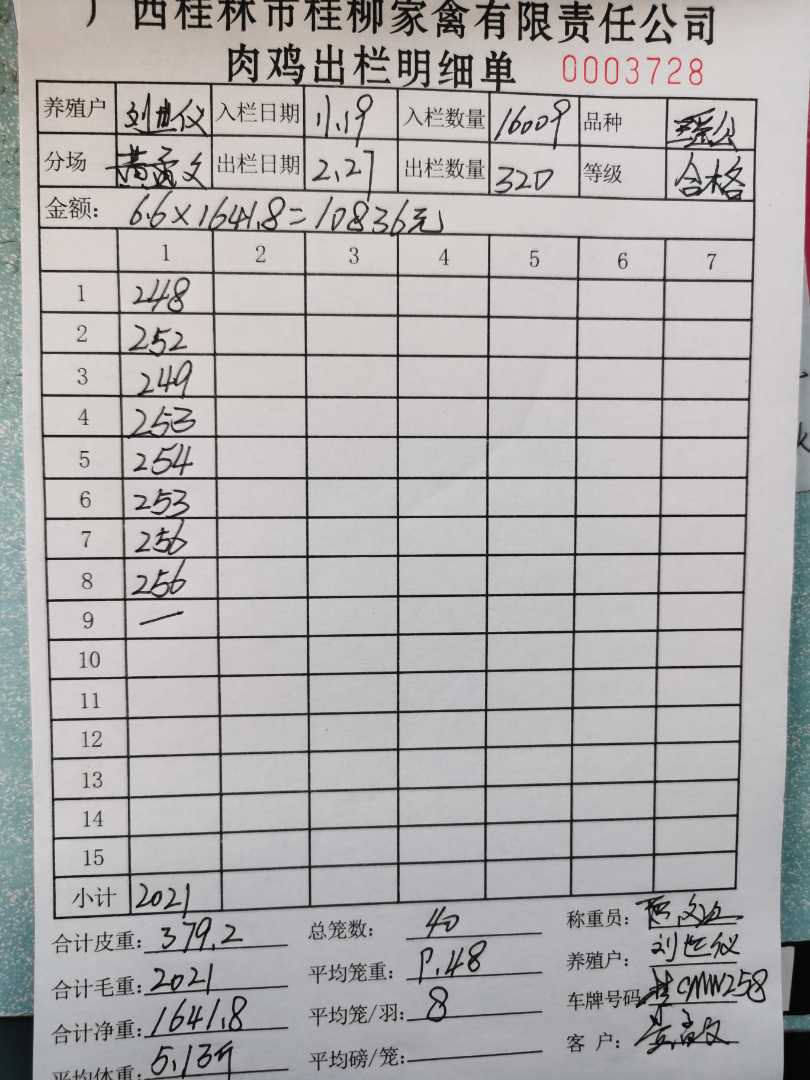 广西桂林市桂柳家禽有限责任公司
肉鸡出栏明细单 0003728
养殖户 刘世仪 入栏日期 11.19 入栏数量 1600羽 品种
分场 黄孟文 出栏日期 2.27 出栏数量 320 等级 合格
金额: 6.6×1641.8=10836元
1 2 3 4 5 6 7
1 248
2 252
3 249
4 253
5 254
6 253
7 256
8 256
9 —
10
11
12
13
14
15
小计 2021
合计皮重: 379.2 总笼数: 40 称重员:
合计毛重: 2021 平均笼重: 9.48 养殖户: 刘世仪
合计净重: 1641.8 平均笼/羽: 8 车牌号码: CMW258
平均体重: 5.13斤 平均磅/笼: 客 户: